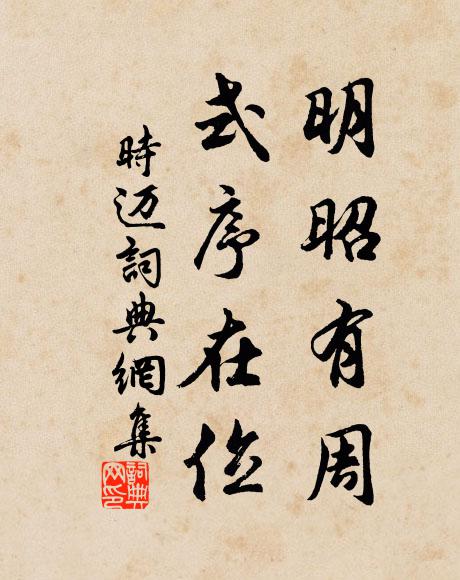 明昭有周
式序在位
時迈詞典網集
詞典网印